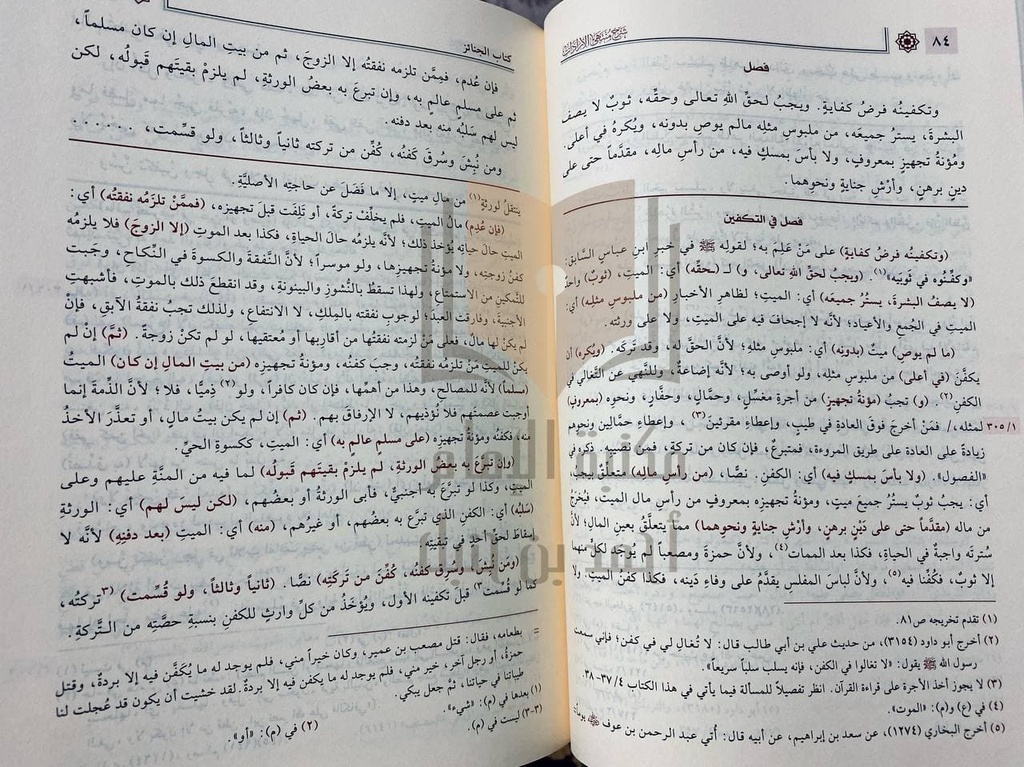 ٨٤
شرح منتهى الإرادات
فصل
وتكفينُه فرضُ كفايةٍ. ويجبُ لحقِّ اللهِ تعالى وحقِّه، ثوبٌ لا يصف
البشرةَ، يسترُ جميعَه، من ملبوسِ مثلِه مالم يوصِ بدونه، ويُكرهُ في أعلى.
ومُؤنةُ تجهيزٍ بمعروفٍ، ولا بأسَ بمسكٍ فيه، من رأسِ مالِه، مقدَّماً حتى على
دينٍ برهنٍ، وأَرْشِ جنايةٍ ونحوهما.
فصل في التكفين
(وتكفينُه فرضُ كفايةٍ) على مَنْ عَلِمَ به؛ لقوله ﷺ في خبرِ ابنِ عباسٍ السابق:
«وكفِّنُوه في ثوبَيه»(١). (ويجبُ لحقِّ اللهِ تعالى، و) لـ (ـحقِّه) أي: الميتِ، (ثوبٌ) واحدٌ
(لا يصفُ البشرةَ، يسترُ جميعَه) أي: الميتِ؛ لظاهر الأخبارِ (من ملبوسِ مثلِه) أي:
الميتِ في الجُمع والأعيادِ؛ لأنَّه لا إجحافَ فيه على الميتِ، ولا على ورثتِه.
(ما لم يوصِ) ميتٌ (بدونِه) أي: ملبوسِ مثلِه؛ لأنَّ الحقَّ له، وقد تركَه. (ويكره) أن
يكفَّنَ (في أعلى) من ملبوسِ مثلِه، ولو أوصى به؛ لأنَّه إضاعةٌ، وللنَّهي عن التَّغالي في
الكفنِ(٢). (و) تجبُ (مؤنةُ تجهيزٍ) من أجرةِ مغسِّلٍ، وحمَّالٍ، وحفَّارٍ، ونحوه (بمعروفٍ)
٣٠٥/١ لمثلِه،/ فمَنْ أخرجَ فوقَ العادةِ في طيبٍ، وإعطاءِ مقرئين(٣)، وإعطاءِ حمَّالين ونحوهم
زيادةً على العادةِ على طريقِ المروءةِ، فمتبرعٌ، فإن كان من تركةٍ، فمن نصيبِه. ذكره في
«الفصول». (ولا بأسَ بمسكٍ فيه) أي: الكفنِ. نصًّا، (من رأسِ مالِه) متعلِّقٌ بيجب،
أي: يجبُ ثوبٌ يسترُ جميعَ ميتٍ، ومؤنةُ تجهيزِه بمعروفٍ من رأسِ مالِ الميت، فيُخرَجُ
من ماله (مقدَّماً حتى على دَيْنٍ برهنٍ، وأَرْشِ جنايةٍ ونحوهما) مما يتعلَّقُ بعينِ المالِ؛ لأنَّ
سُترتَه واجبةٌ في الحياةِ، فكذا بعد المماتِ(٤)، ولأنَّ حمزةَ ومصعباً لم يُوجد لكلٍّ منهما
إلا ثوبٌ، فكُفِّنا فيه(٥)، ولأنَّ لباسَ المفلسِ يقدَّمُ على وفاءِ دَينِه، فكذا كفنُ الميتِ. ولا
(١) تقدم تخريجه ص٨١.
(٢) أخرج أبو داود (٣١٥٤)، من حديث علي بن أبي طالب قال: لا تُغالِ لي في كفن؛ فإني سمعت
رسول الله ﷺ يقول: «لا تغالوا في الكفن، فإنه يسلب سلباً سريعاً».
(٣) لا يجوز أخذ الأجرة على قراءة القرآن. انظر تفصيلاً للمسألة فيما يأتي في هذا الكتاب ٣٧/٤-٣٨.
(٤) في (ع) و(م): «الموت».
(٥) أخرج البخاري (١٢٧٤)، عن سعد بن إبراهيم، عن أبيه قال: أُتي عبد الرحمن بن عوف يوماً
كتاب الجنائز
فإن عُدم، فممَّن تلزمه نفقتُه إلا الزوجَ، ثم من بيتِ المالِ إن كان مسلماً،
ثم على مسلمٍ عالمٍ به، وإن تبرعَ به بعضُ الورثةِ، لم يلزمْ بقيتَهم قَبولُه، لكن
ليس لهم سَلبُه منه بعد دفنه.
ومن نُبشَ وسُرقَ كَفنُه، كُفِّن من تركتِه ثانياً وثالثاً، ولو قسِّمت، . . . . . .
ينتقلُ لورثةٍ(١) من مالِ ميتٍ، إلا ما فَضَلَ عن حاجتِه الأصليَّةِ.
(فإن عُدِم) مالُ الميتِ، فلم يخلِّفْ تركةً، أو تَلِفَت قبلَ تجهيزِه، (فممَّنْ تلزَمُه نفقتُه) أي:
الميتِ حالَ حياتِه يُؤخذ ذلك؛ لأنَّه يلزمُه حالَ الحياةِ، فكذا بعد الموتِ (إلا الزوجَ) فلا يلزمُه
كفنُ زوجتِه، ولا مؤنةُ تجهيزِها، ولو موسراً؛ لأنَّ النَّفقةَ والكسوةَ في النِّكاح، وجَبت
للتَّمكينِ من الاستمتاعِ، ولهذا تسقطُ بالنُّشوزِ والبينونةِ، وقد انقطعَ ذلك بالموتِ، فأشبهتِ
الأجنبيةَ، وفارقت العبدَ؛ لوجوبِ نفقتِه بالمِلكِ، لا الانتفاعِ، ولذلك تجبُ نفقةُ الآبقِ، فإنْ
لم يكن لها مالٌ، فعلى مَنْ لزمته نفقتُها من أقاربِها أو مُعتقِها، لو لم تكن زوجةً. (ثمَّ) إنْ لم
يكن للميتِ من تلزمُه نفقتُه، وجبَ كفنُه، ومؤنةُ تجهيزِه (من بيتِ المالِ إن كان) الميتُ
(مسلماً) لأنَّه للمصالحِ، وهذا من أهمِّها، فإن كان كافراً، ولو(٢) ذِميًّا، فلا؛ لأنَّ الذِّمةَ إنما
أوجبت عصمتَهم فلا نُؤذيهم، لا الإرفاقَ بهم. (ثم) إن لم يكن بيتُ مالٍ، أو تعذَّرَ الأخذُ
منه، فكفنُه ومؤنةُ تجهيزِه (على مسلمٍ عالمٍ به) أي: الميتِ، ككسوةِ الحيِّ.
(وإن تبرَّعَ به بعضُ الورثةِ، لم يلزمْ بقيتَهم قَبولُه) لما فيه من المنَّةِ عليهم وعلى
الميتِ، وكذا لو تبرَّعَ به أجنبيٌّ، فأبى الورثةُ أو بعضُهم، (لكن ليسَ لهم) أي: الورثةِ
(سَلبُه) أي: الكفنِ الذي تبرَّعَ به بعضُهم، أو غيرُهم، (منه) أي: الميتِ (بعد دفنِه) لأنَّه لا
إسقاطَ لحقِّ أحدٍ في تبقيتِه.
(ومَن نُبشَ وسُرقَ كفنُه، كُفِّنَ من تَرِكتِه) نصًّا. (ثانياً وثالثاً، ولو قُسِّمت) (٣تركتُه،
كما لو قُسِّمت٣) قبلَ تكفينِه الأول، ويُؤخَذُ من كلِّ وارثٍ للكفنِ بنسبةِ حصَّتِه من التَّركةِ.
= بطعامه، فقال: قتل مصعب بن عمير، وكان خيراً مني، فلم يوجد له ما يُكفَّن فيه إلا بردةٌ، وقتل
حمزةُ، أو رجل آخر، خير مني، فلم يوجد له ما يكفن فيه إلا بردةٌ. لقد خشيت أن يكون قد عُجلت لنا
طيباتنا في حياتنا، ثمَّ جعل يبكي.
(١) بعدها في (م): «شيء».
(٢) في (م): «أو».
(٣-٣) ليست في (م).
مكتبة
أحمد بن